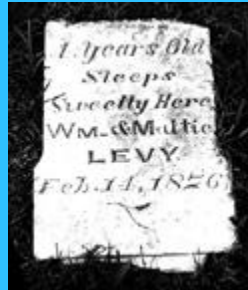 1 Years Old
Sleeps
Sweetly Here
WM. & Mattie
LEVY.
Feb. 14, 1876